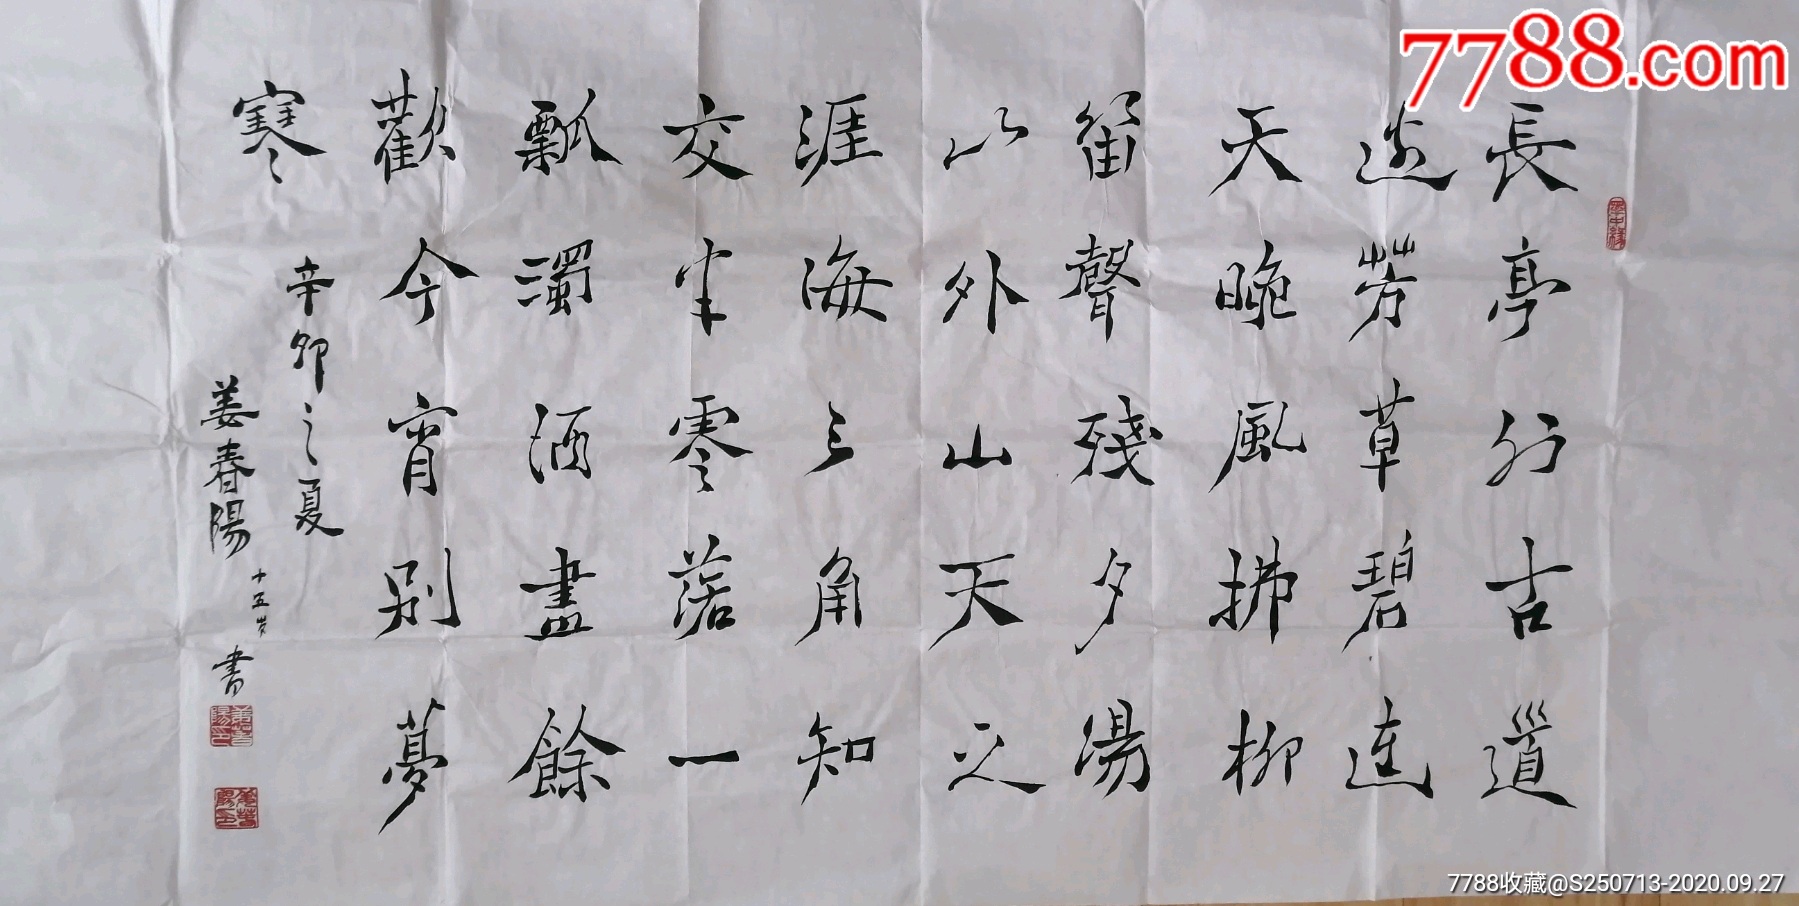 7788.com
長亭行古道
邊芳草碧連
天晚風拂柳
笛聲殘夕陽
山外山天之
涯海之角知
交半零落一
瓢濁酒盡餘
歡今宵別夢
寒
辛卯之夏
姜春陽十五岁書
7788收藏@S250713-2020.09.27